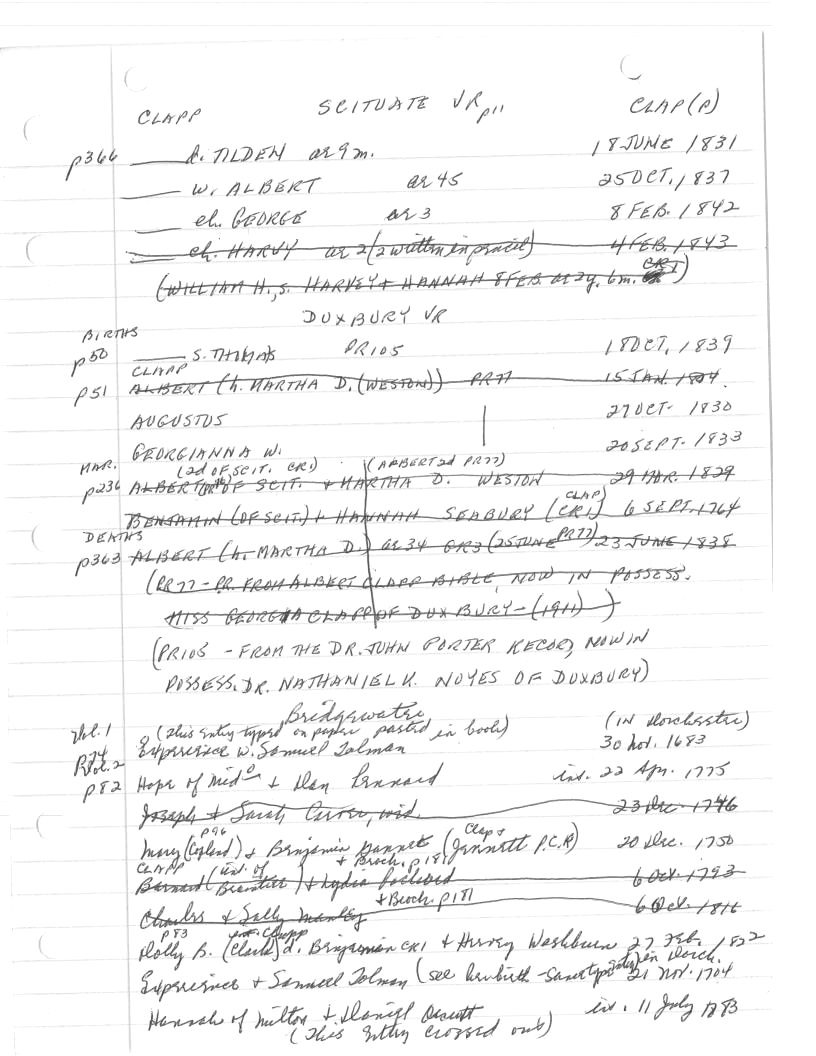 CLAPP SCITUATE VR p11 CLAP(P)
p366 ____ d. TILDEN ae 9 m. 18 JUNE 1831
____ w. ALBERT ae 45 25 OCT, 1837
____ ch. GEORGE ae 3 8 FEB. 1842
____ ch. HARVY ae 2 (2 written in pencil) 4 FEB. 1843
(WILLIAM H., s. HARVEY + HANNAH 8 FEB. ae 2y. 6m. CR1)
DUXBURY VR
BIRTHS
p50 ____ S. THOMAS PR105 18 OCT, 1839
CLAPP
p51 ALBERT (h. MARTHA D. (WESTON)) PR77 15 JAN. 1804.
AUGUSTUS 27 OCT- 1830
GEORGIANNA W. 20 SEPT. 1833
MAR. (2d OF SCIT. CR1) (ALBERT 2d PR77)
p236 ALBERT OF SCIT. + MARTHA D. WESTON 29 MAR. 1829
BENJAMIN (OF SCIT.) + HANNAH SEABURY (CLAP CR1) 6 SEPT. 1764
DEATHS
p363 ALBERT (h. MARTHA D.) ae 34 GR3 (25 JUNE PR77) 23 JUNE 1838
(PR77 - PR. FROM ALBERT CLAPP BIBLE, NOW IN POSSESS.
MISS GEORGIA CLAPP OF DUXBURY - (1911))
(PR105 - FROM THE DR. JOHN PORTER RECORD, NOW IN
POSSESS. DR. NATHANIEL K. NOYES OF DUXBURY)
Bridgewater
Vol. 1 (This entry typed on paper pasted in book) (IN Dorchester)
p74 Experience w. Samuel Tolman 30 Nov. 1683
Vol. 2
p82 Hope of Mid + Dan Lennard int. 22 Apr. 1775
Joseph + Sarah Carver, wid. 23 Dec. 1746
p96 Clap +
Mary (Copland) + Benjamin Gannett (Jennett P.C.R) 20 Dec. 1750
CLAPP int. of + Broch. p181
Barnard (Braintree) + Lydia Packard 6 Oct. 1793
+ Broch. p181
Charles + Sally Manley 6 Oct. 1816
p83 int. Clapp
Dolly B. (Clark) d. Benjamin CR1 + Hervey Washburn 27 Feb. 1822
Experience + Samuel Tolman (see her birth - same typed entry) in Dorch. 21 Nov. 1704
Hannah of Milton + Daniel int. 11 July 1783
(This entry crossed out)